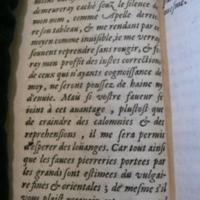 demeureray caché sous le silence d
mon nom, comme Apelle derrie
son tableau, & me rendant par ce
moyen comme inuisible, ie me verr
souuent reprendre sans rougir, & fe
ray mon profit des iustes corrections
de ceux qui n'ayants cognoissance de
moy, ne seront poussez de haine ny
d'enuie. Mais si vostre faueur se
ioint à cet auantage, plustost que
de craindre des calomnies & des
reprehensions, il me sera permis
d'esperer des loüanges. Car tout ainsi
que les fauces pierreries portees par
les grands sont estimees du vulgai-
re fines & orientales; de mesme s'il
vous plaist